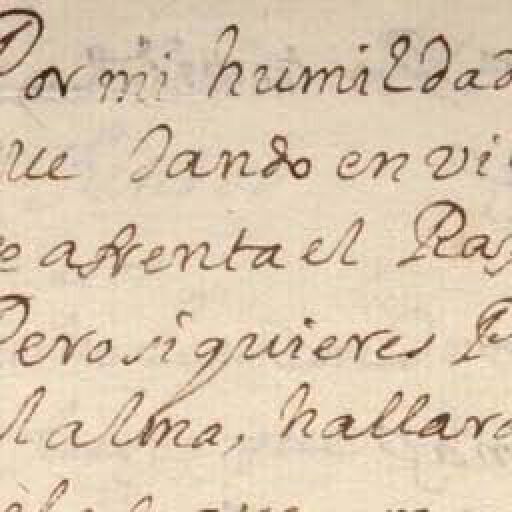 Por mi humildad
que dando en vi
e afrenta el Ras
Pero si quieres P
l alma, hallara